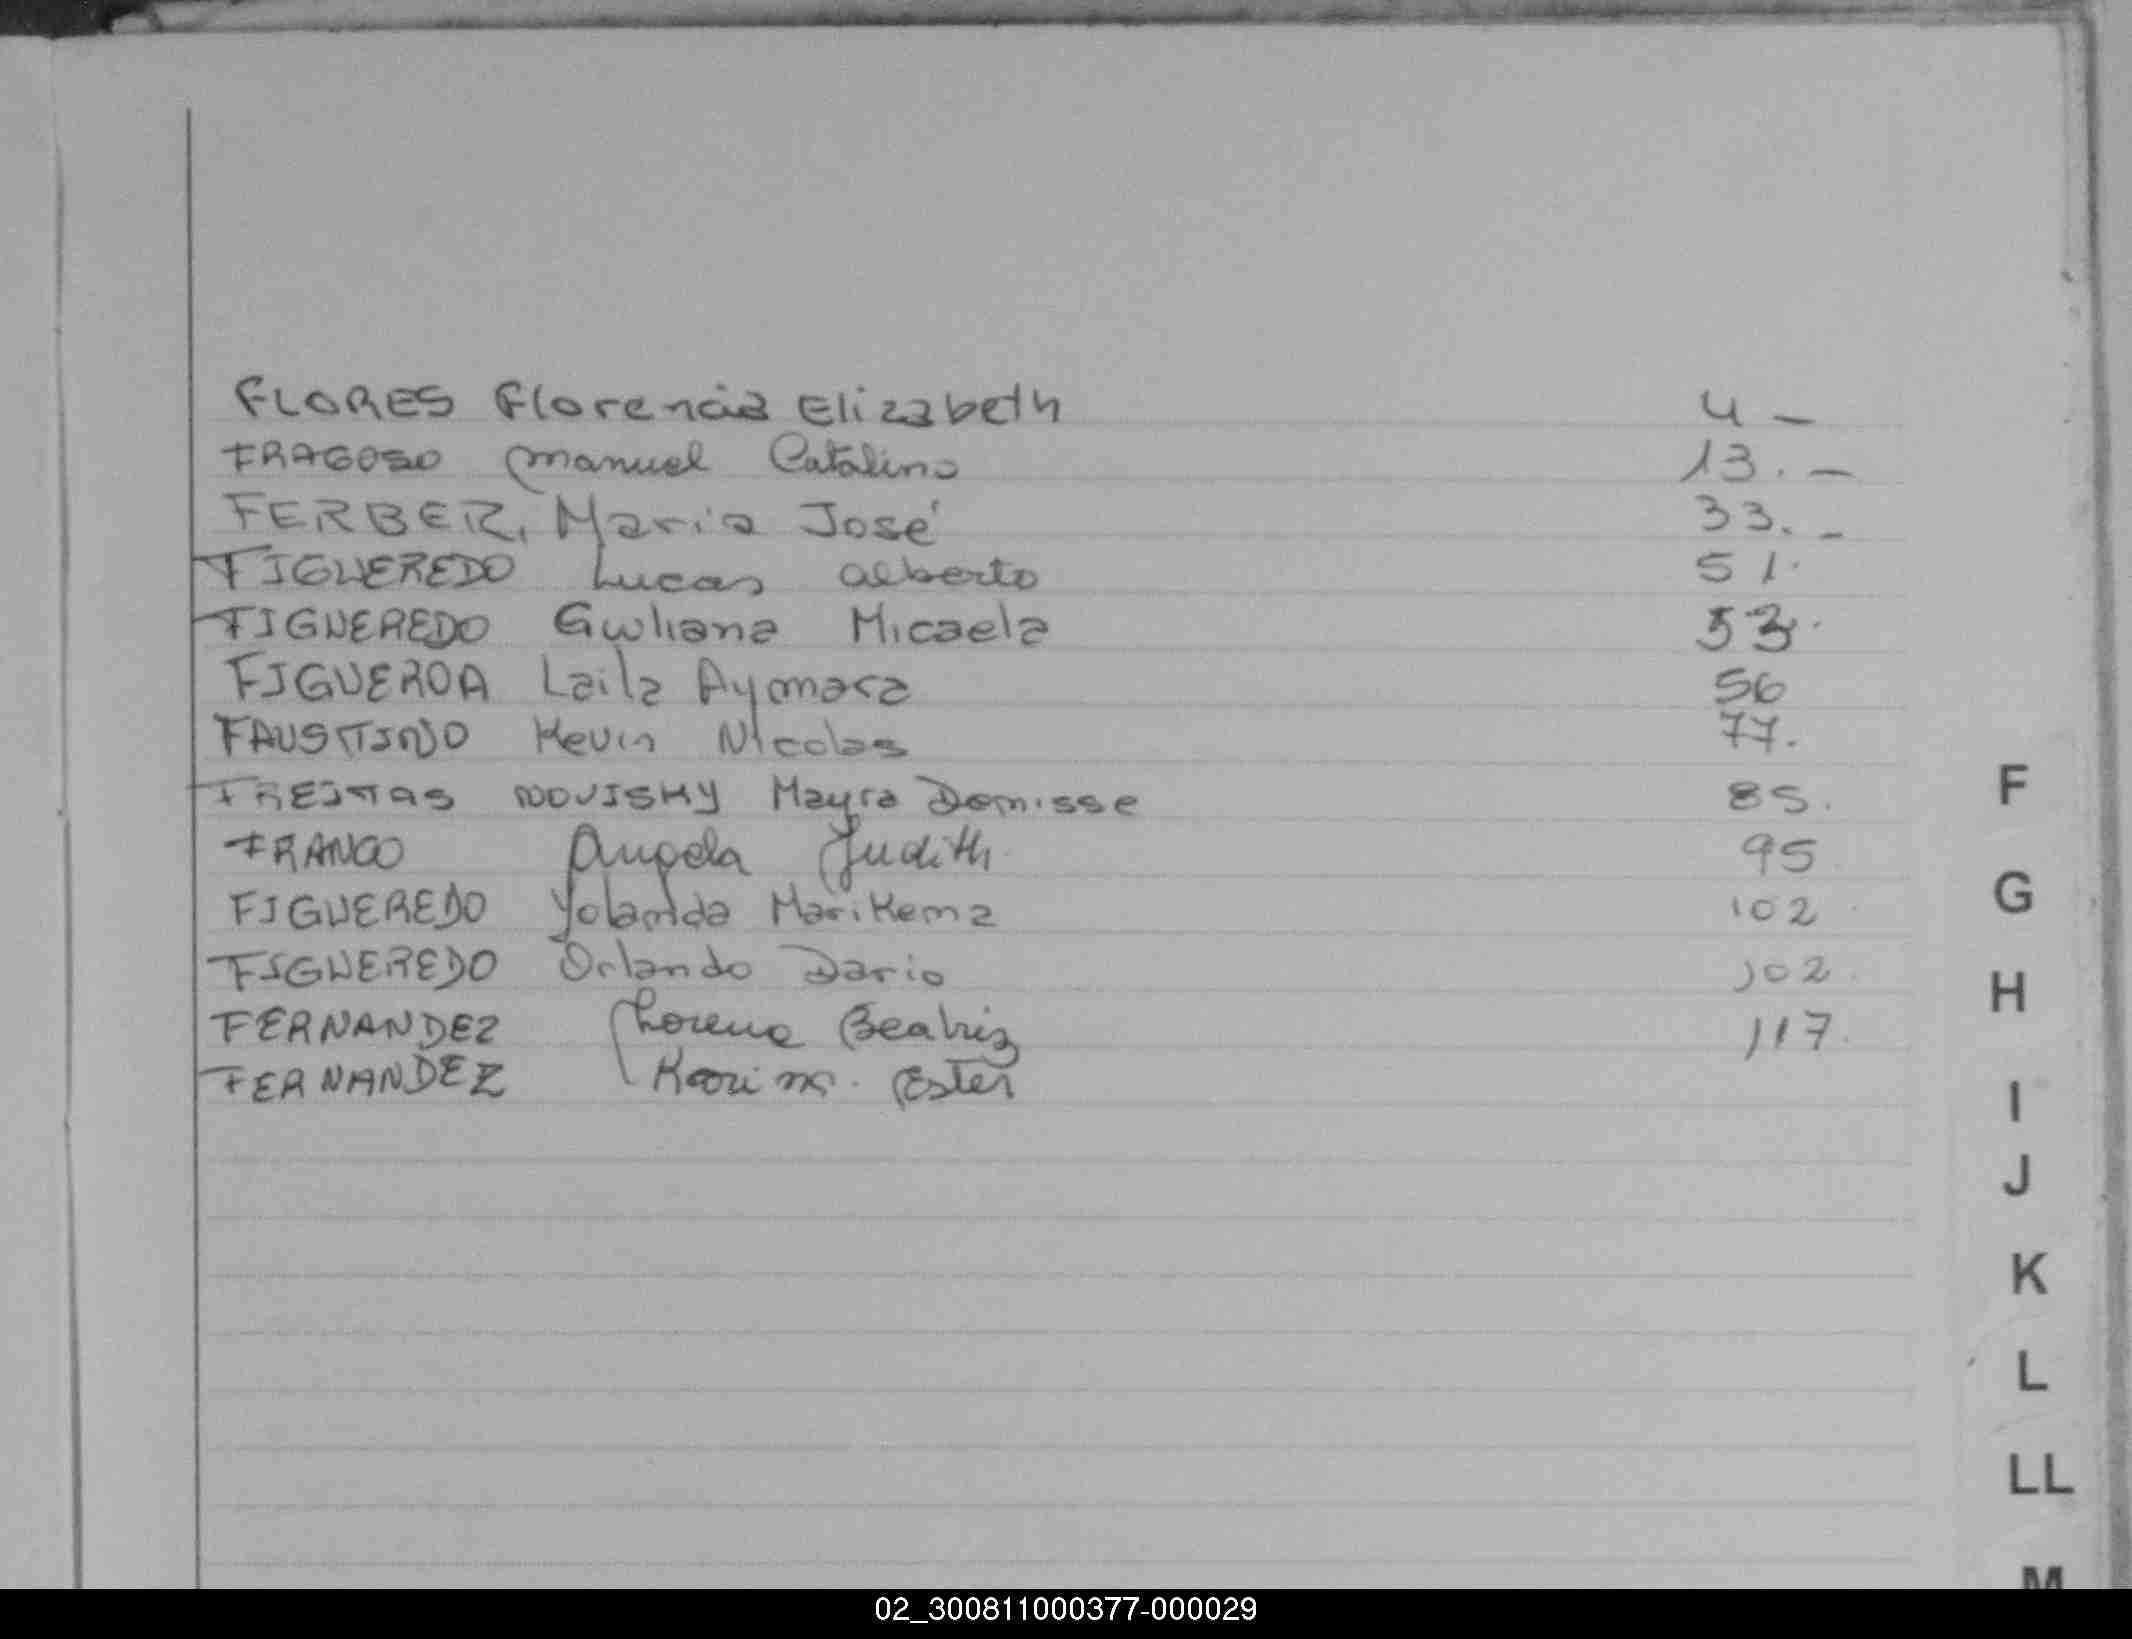 FLORES Florencia Elizabeth 4 -
FRAGOSO Manuel Catalino 13. -
FERBER, Maria José 33. -
FIGUEREDO Lucas Alberto 51.
FIGUEREDO Giuliana Micaela 53.
FIGUEROA Laila Aymara 56
FAUSTINO Kevin Nicolas 77.
FREITAS NOVISKY Mayra Domisse 85.
FRANCO Angela Judith 95
FIGUEREDO Yolanda Marikena 102
FIGUEREDO Orlando Dario 102.
FERNANDEZ Lorena Beatriz 117.
FERNANDEZ Karina Ester
F
G
H
I
J
K
L
LL
M
02_300811000377-000029